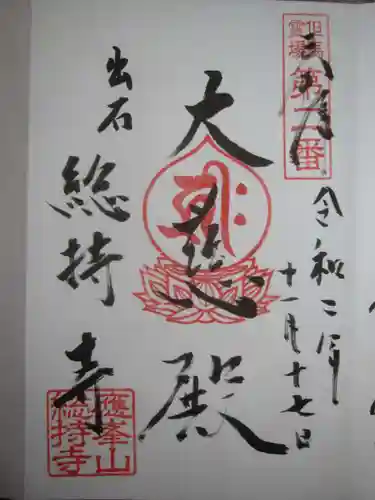 奉拝
但馬
霊場
第二番
令和二年
十一月十七日
大悲殿
出石
総持寺
護峯山
総持寺